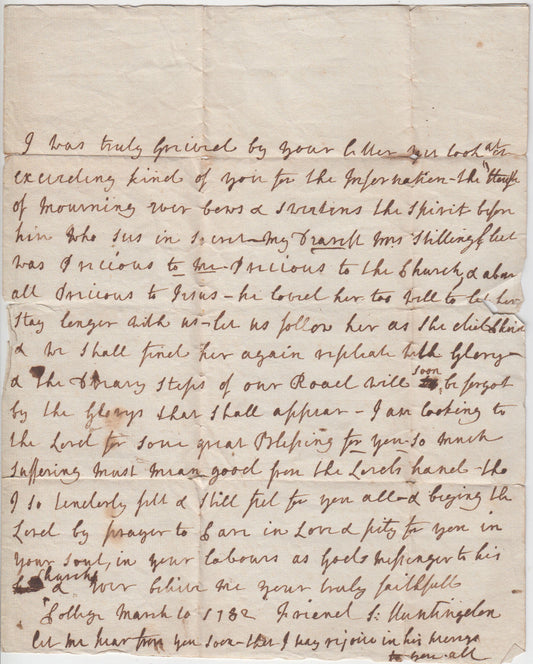 I was truly Grieved by your letter yet took it
exceeding kind of you for the Information - the House
of Mourning ever bows & the Spirit before
him Who Sees in Secret - My Dearest Mrs Stillingfleet
was Precious to me - Precious to the Church & above
all Precious to Jesus - he loved her too well to let her
Stay longer with us - let us follow her as She did Christ
& we shall find her again repleate with Glory -
& the Dreary Steps of our Road will soon be forgot
by the Glorys that shall appear - I am looking to
the Lord for some great Blessing for you - So much
Suffering must mean good from the Lord's hand - tho
I so tenderly felt & still feel for you all - & beging the
Lord by prayer to in Love & pity for you in
your Soul, in your labours as Gods messenger to his
Church & ever believe me your truly faithfull
College March 10 1782 Friend S: Huntingdon
let me hear from you soon - that I may rejoice in his mercys
to you all